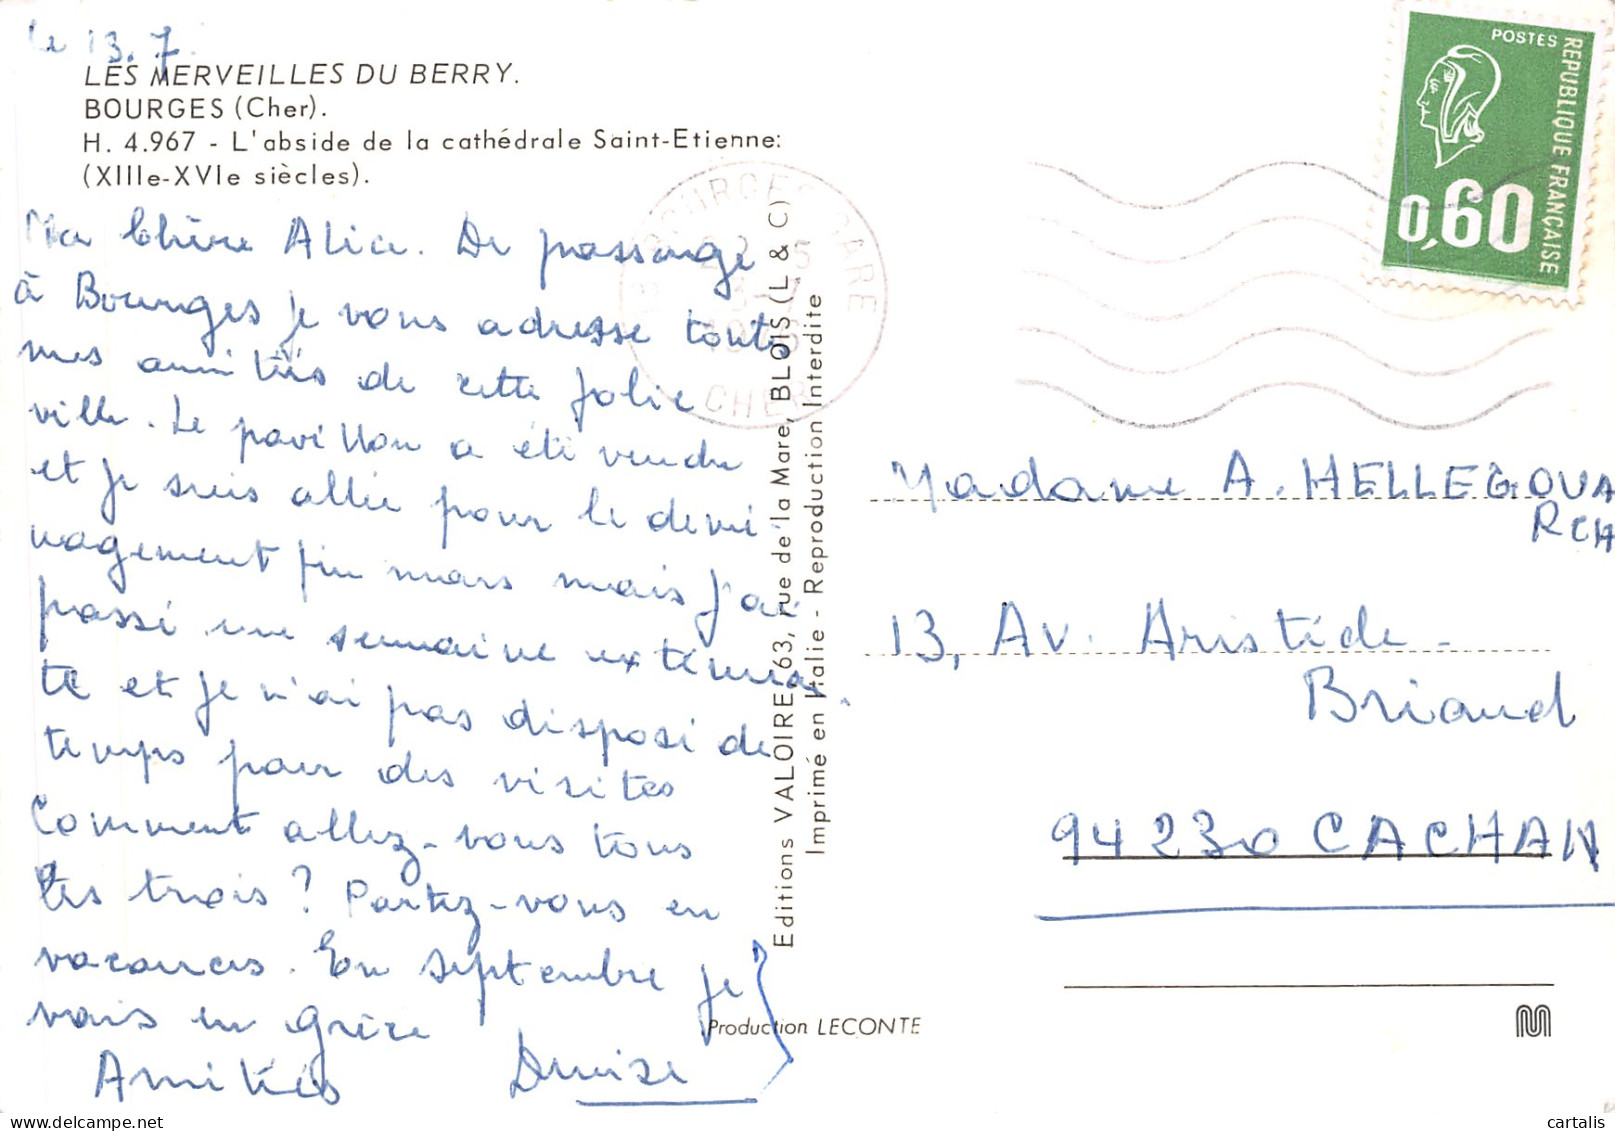 le 13.7.
LES MERVEILLES DU BERRY.
BOURGES (Cher).
H. 4.967 - L'abside de la cathédrale Saint-Etienne:
(XIIIe-XVIe siècles).
Ma Chère Alice. De passage
à Bourges je vous adresse toutes
mes amitiés de cette jolie
ville. Le pavillon a été vendu
et je suis allée pour le démé-
nagement fin mars mais j'ai
passé une semaine extenuan
te et je n'ai pas disposé de
temps pour des visites
Comment allez-vous tous
les trois ? Partez-vous en
vacances. En septembre je
vais en Grèce
Amitiés Denise
Editions VALOIRE, 63, rue de la Mare, BLOIS (L & C)
Imprimé en Italie - Reproduction Interdite
Production LECONTE
BOURGES GARE
CHER
POSTES
REPUBLIQUE FRANÇAISE
0,60
Madame A. HELLEGOUA
RCH
13, Av. Aristide -
Briand
94230 CACHAN
cartalis